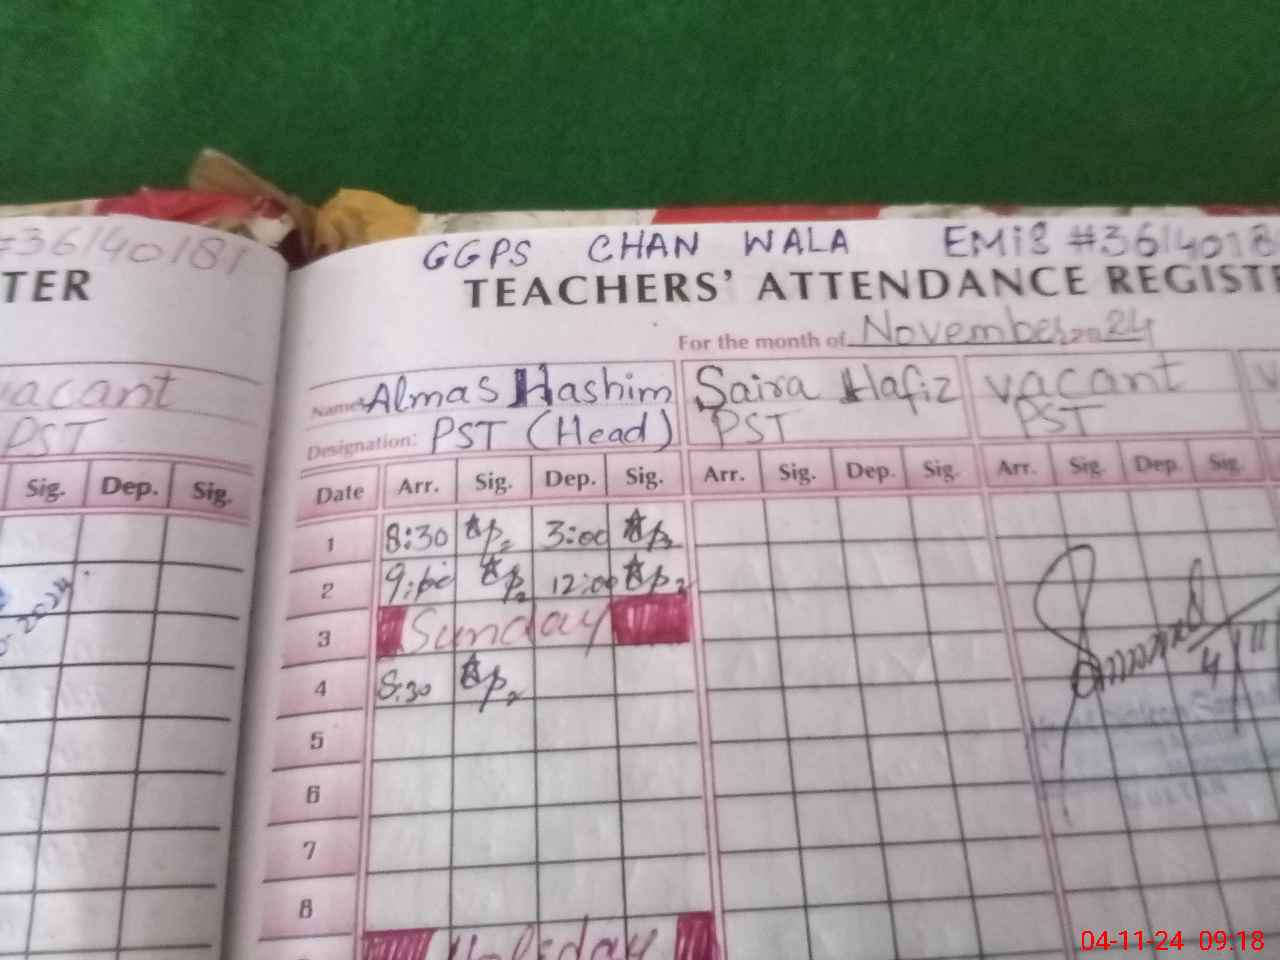 #36140181
TER
vacant
PST
Sig. Dep. Sig.
GGPS CHAN WALA EMIS #3614018
TEACHERS' ATTENDANCE REGISTE
For the month of November 2024
Name: Almas Hashim Saira Hafiz vacant V
Designation: PST (Head) PST PST
Date Arr. Sig. Dep. Sig. Arr. Sig. Dep. Sig. Arr. Sig. Dep. Sig.
1 8:30 3:00
2 9:00 12:00
3 Sunday
4 8:30
4/11
5
6
MULTAN
7
8
Holiday
04-11-24 09:18